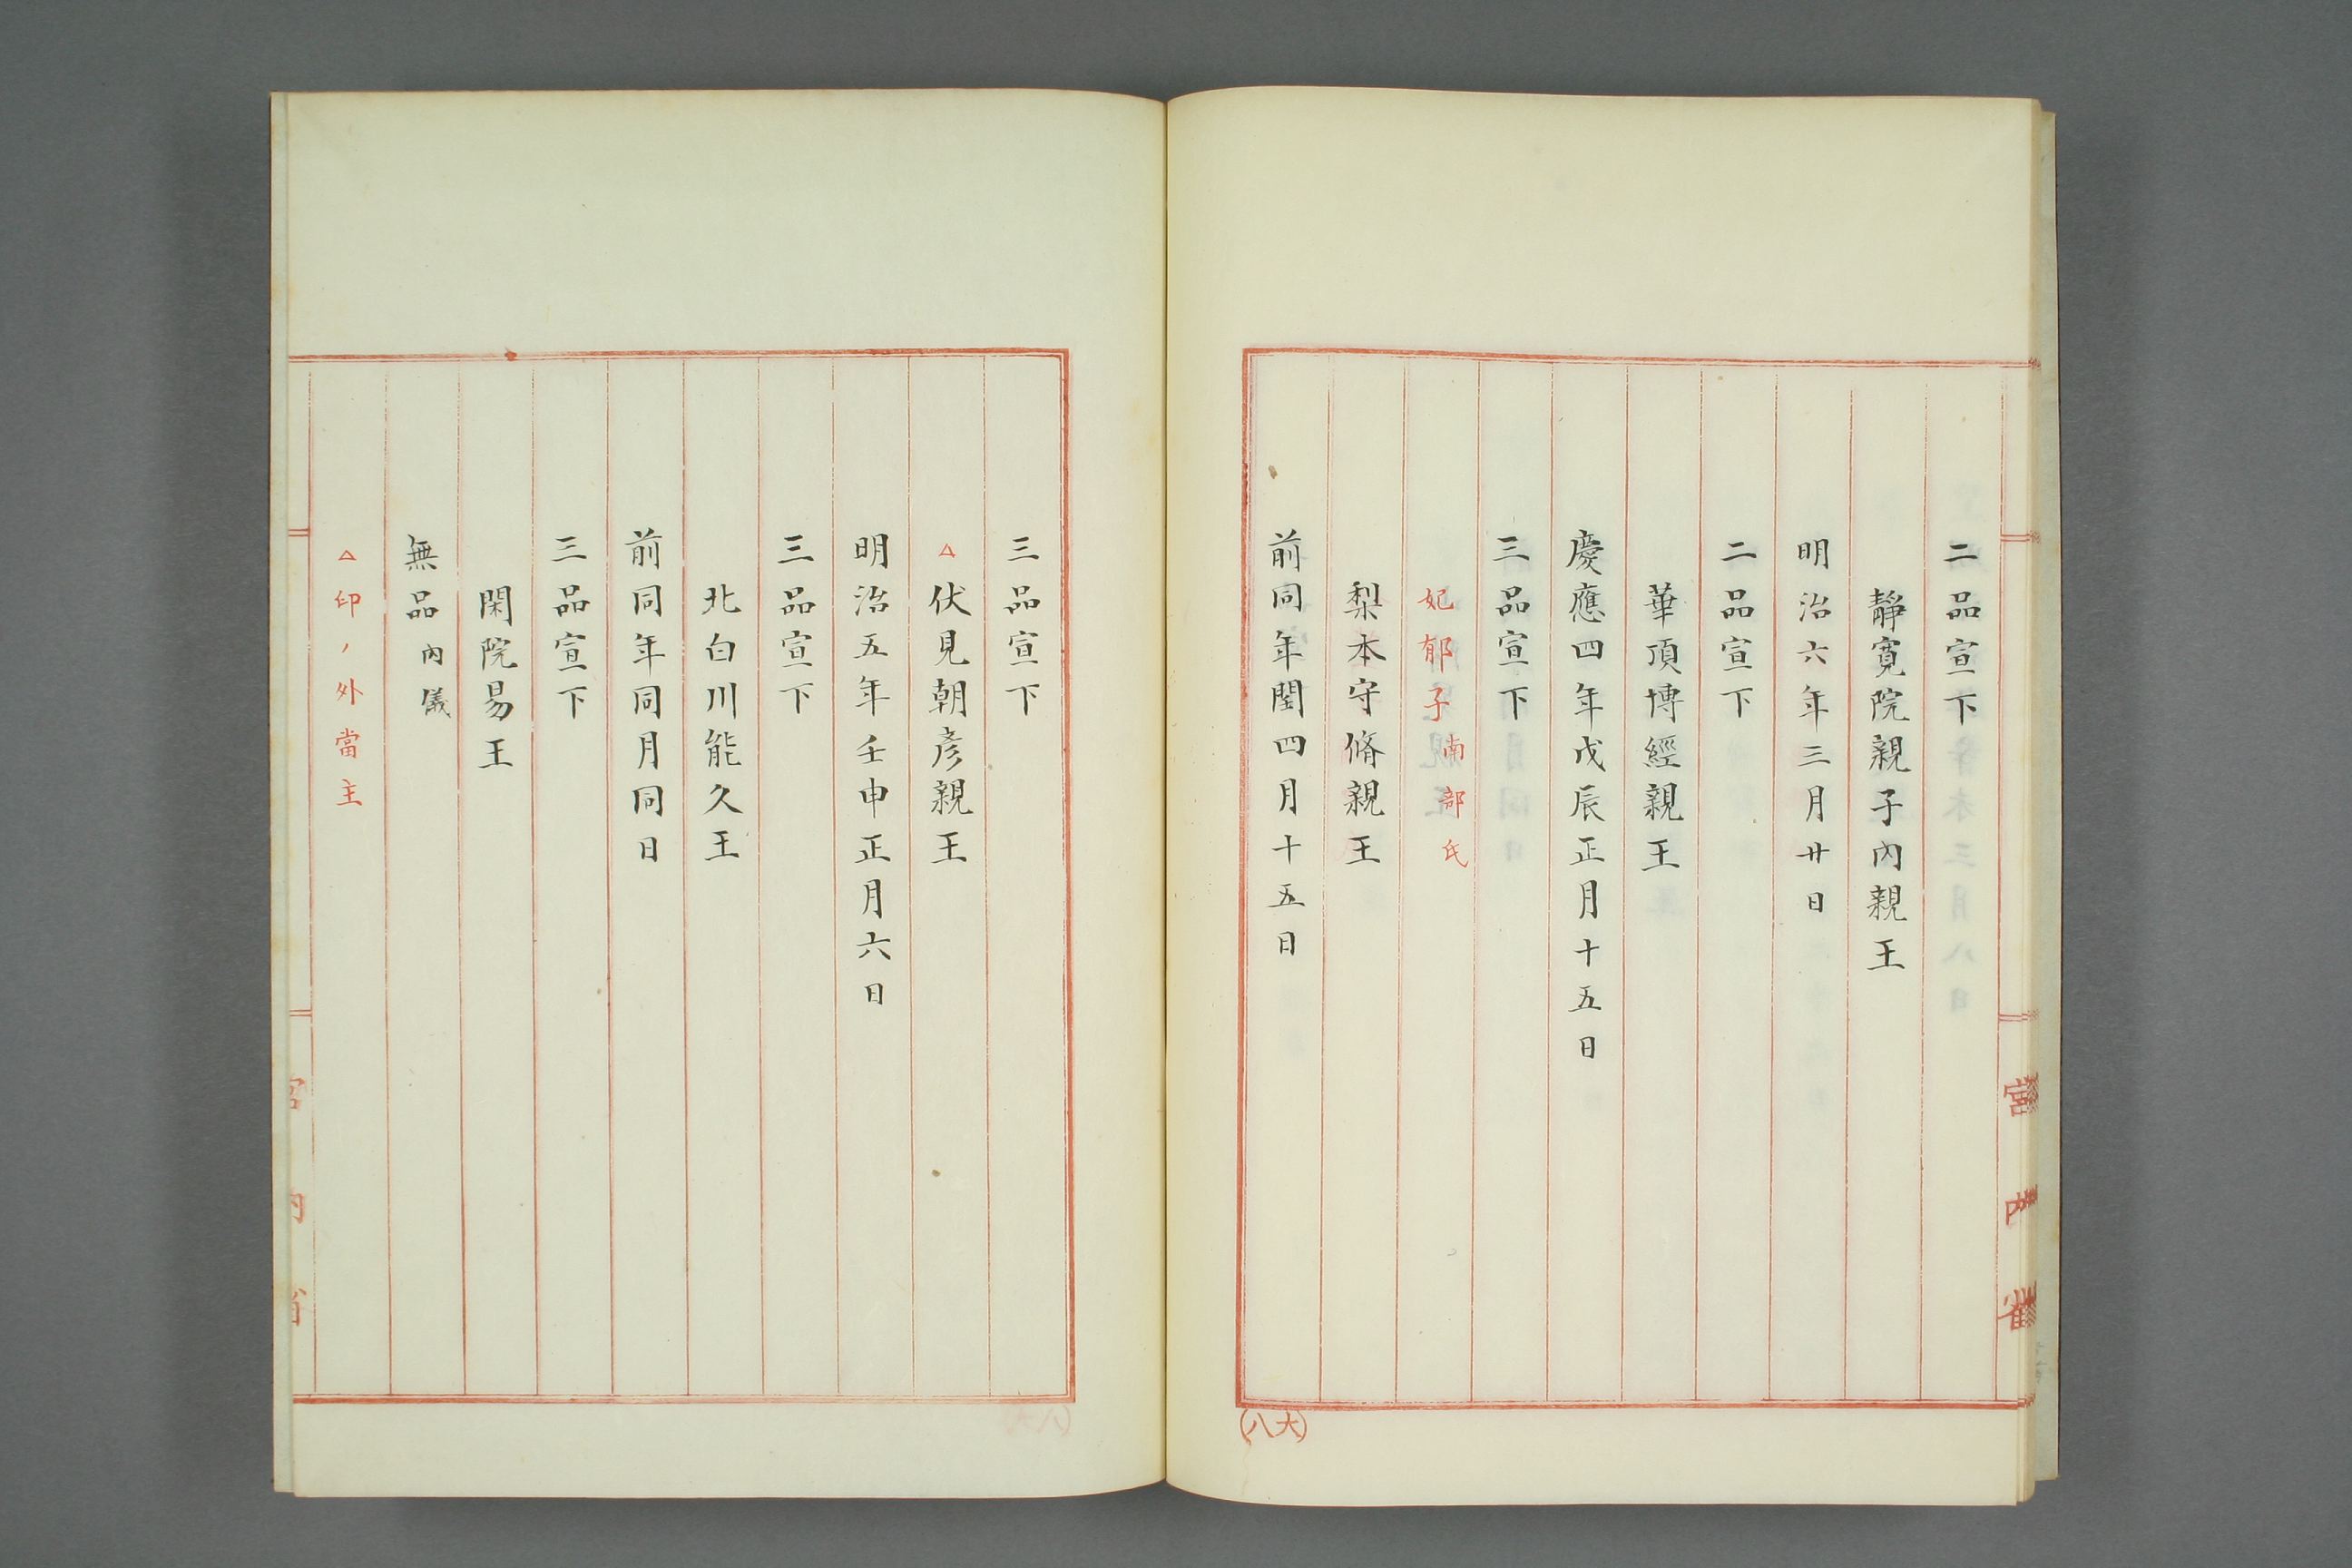 二品宣下
靜寛院親子內親王
明治六年三月廿日
二品宣下
華頂博經親王
慶應四年戊辰正月十五日
三品宣下
妃郁子南部氏
梨本守脩親王
前同年閏四月十五日
宮內省
(大八)
三品宣下
△伏見朝彦親王
明治五年壬申正月六日
三品宣下
北白川能久王
前同年同月同日
三品宣下
閑院易王
無品內儀
△印ノ外當主
宮內省